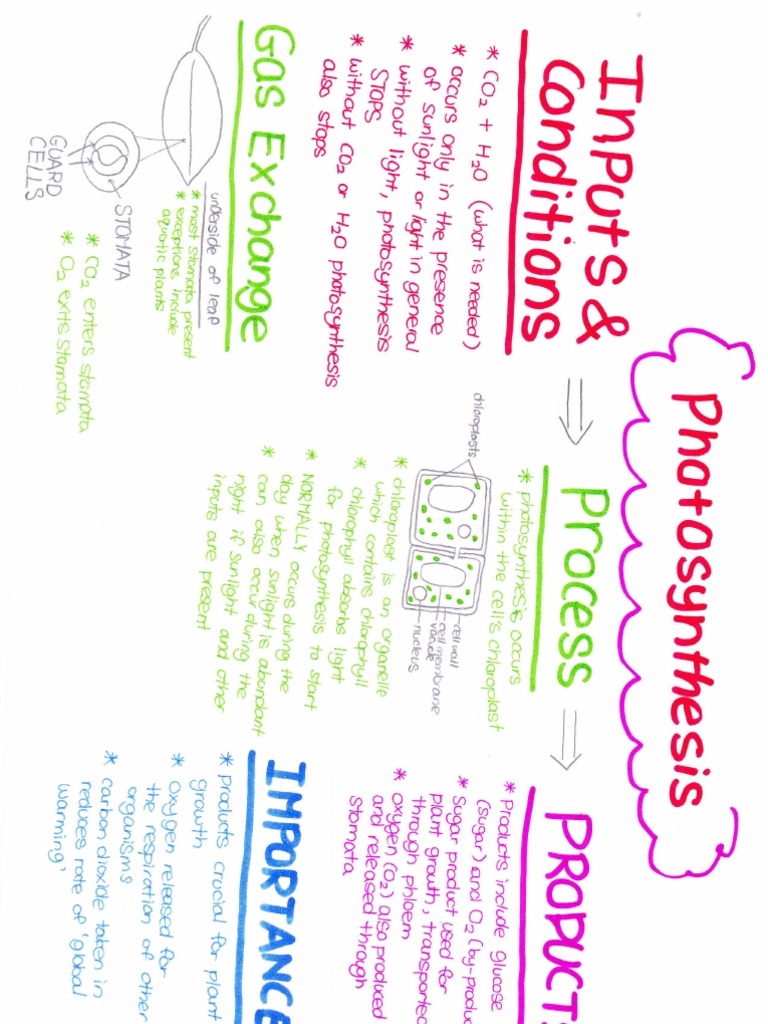 Photosynthesis
Inputs &
Conditions
* CO₂ + H₂O (what is needed)
* occurs only in the presence
of sunlight or light in general
* without light, photosynthesis
STOPS
* without CO₂ or H₂O photosynthesis
also stops
Process
* photosynthesis occurs
within the cell's chloroplast
chloroplasts
cell wall
cell membrane
vacuole
nucleus
* chloroplast is an organelle
which contains chlorophyll
* chlorophyll absorbs light
for photosynthesis to start
* NORMALLY occurs during the
day when sunlight is abundant
* can also occur during the
night if sunlight and other
inputs are present
PRODUCTS
* Products include glucose
(sugar) and O₂ (by-produc
* Sugar product used for
plant growth, transported
through phloem
* oxygen (O₂) also produced
and released through
stomata
Gas Exchange
underside of leaf
* most stomata present
* exceptions include
aquatic plants
STOMATA
GUARD
CELLS
* CO₂ enters stomata
* O₂ exits stomata
IMPORTANCE
* products crucial for plant
growth
* oxygen released for
the respiration of other
organisms
* carbon dioxide taken in
reduces rate of 'global
warming'